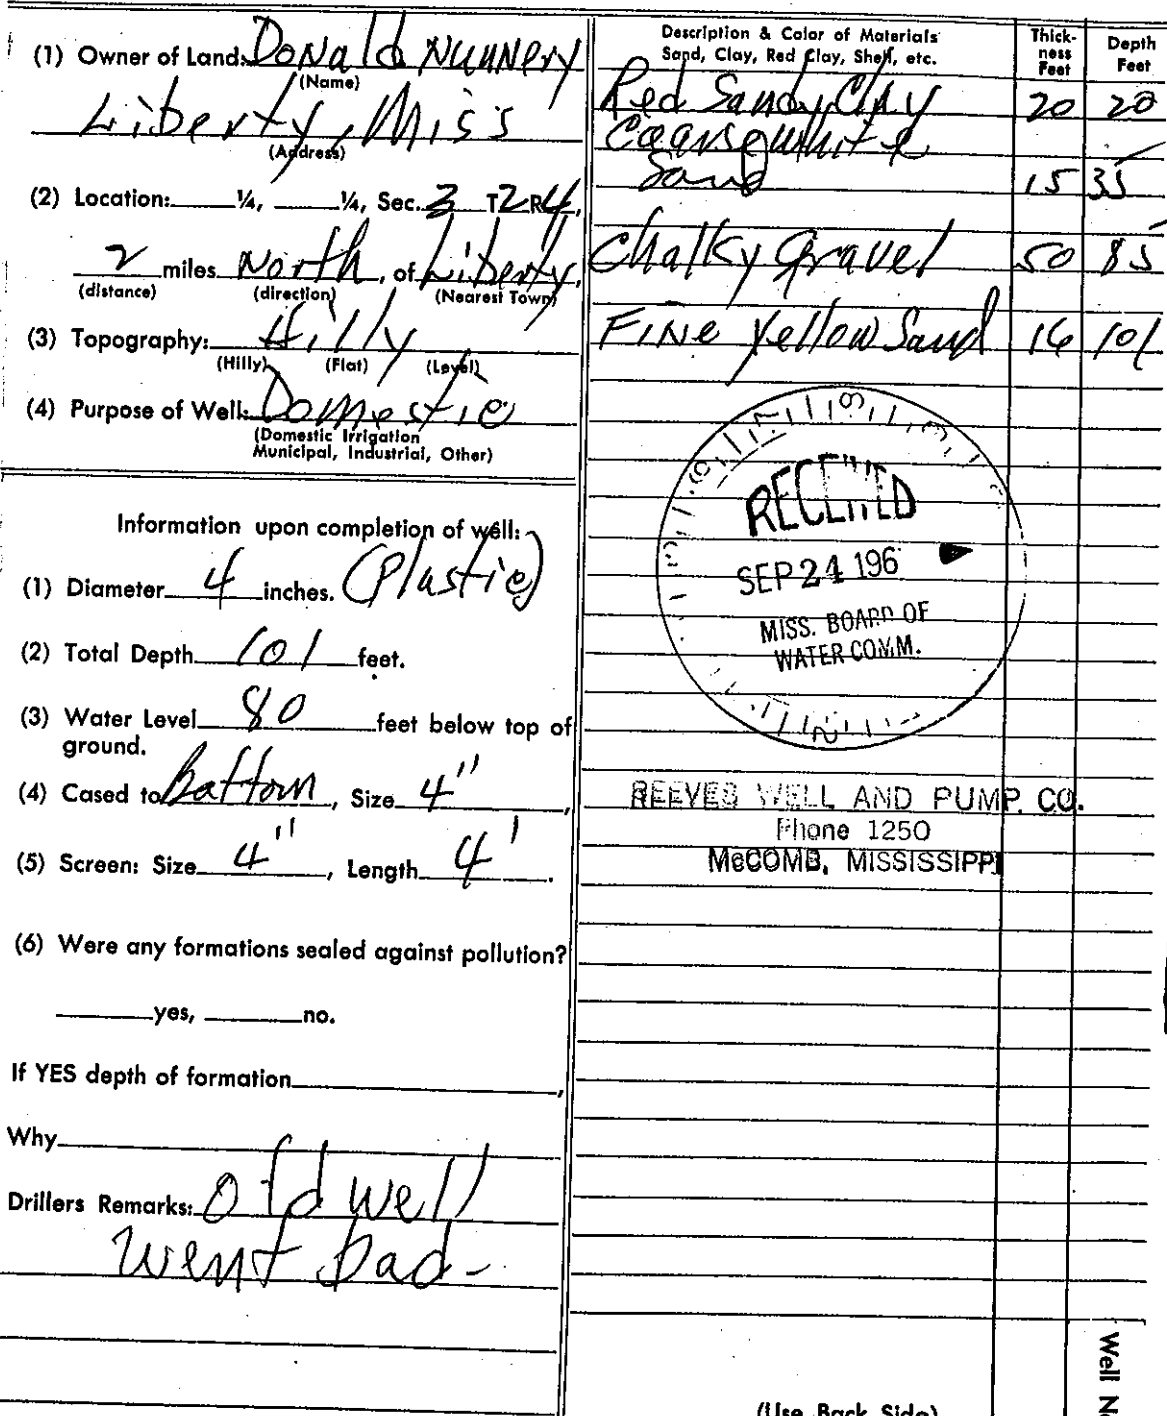 (1) Owner of Land: Donald Nunnery
(Name)
Liberty, Miss
(Address)
(2) Location: ¼, ¼, Sec. 3 T2R4,
2 miles North, of Liberty,
(distance) (direction) (Nearest Town)
(3) Topography: Hilly
(Hilly) (Flat) (Level)
(4) Purpose of Well: Domestic
(Domestic Irrigation
Municipal, Industrial, Other)
Information upon completion of well:
(1) Diameter 4 inches. (Plastic)
(2) Total Depth 101 feet.
(3) Water Level 80 feet below top of
ground.
(4) Cased to Bottom, Size 4",
(5) Screen: Size 4", Length 4'.
(6) Were any formations sealed against pollution?
yes, no.
If YES depth of formation,
Why
Drillers Remarks: Old well
went bad-
Description & Color of Materials
Sand, Clay, Red Clay, Shell, etc.
Thick-
ness
Feet
Depth
Feet
Red Sandy Clay 20 20
Coarse white
Sand 15 35
Chalky Gravel 50 85
Fine Yellow Sand 16 101
RECEIVED
SEP 24 196
MISS. BOARD OF
WATER COMM.
REEVES WELL AND PUMP CO.
Phone 1250
McCOMB, MISSISSIPPI
(Use Back Side)
Well N